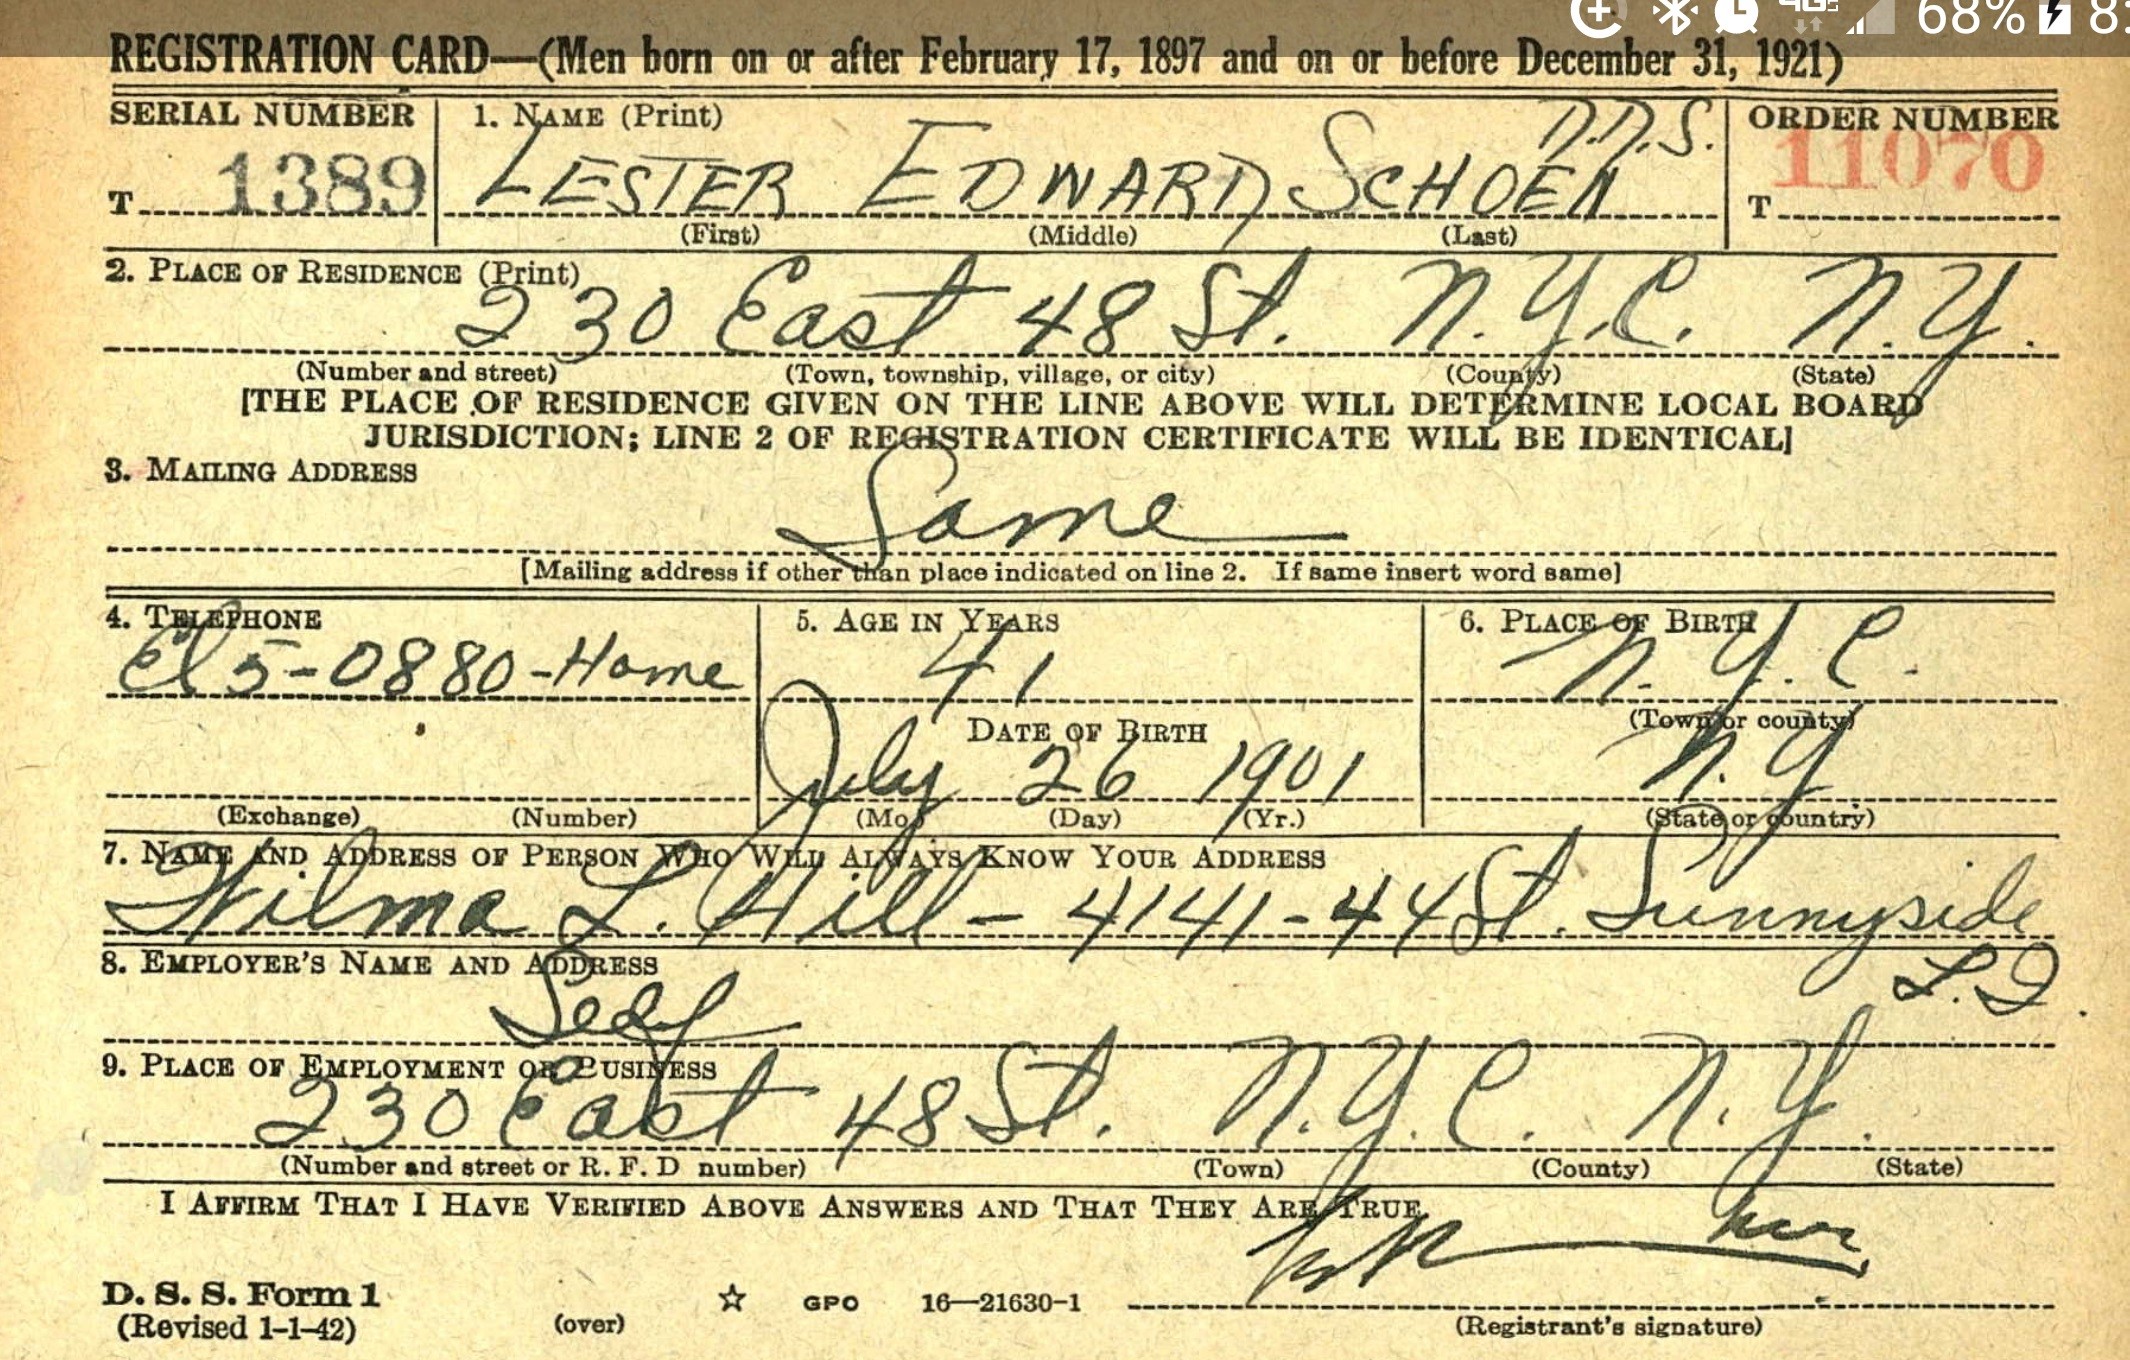 68% 8:
REGISTRATION CARD—(Men born on or after February 17, 1897 and on or before December 31, 1921)
SERIAL NUMBER 1. NAME (Print) D.D.S. ORDER NUMBER
T 1389 LESTER EDWARD SCHOEN T 11070
(First) (Middle) (Last)
2. PLACE OF RESIDENCE (Print)
230 East 48 St. N.Y.C. N.Y.
(Number and street) (Town, township, village, or city) (County) (State)
[THE PLACE OF RESIDENCE GIVEN ON THE LINE ABOVE WILL DETERMINE LOCAL BOARD
JURISDICTION; LINE 2 OF REGISTRATION CERTIFICATE WILL BE IDENTICAL]
3. MAILING ADDRESS
Same
[Mailing address if other than place indicated on line 2. If same insert word same]
4. TELEPHONE 5. AGE IN YEARS 6. PLACE OF BIRTH
El 5-0880-Home 41 N.Y.C.
(Town or county)
DATE OF BIRTH
July 26 1901 N.Y.
(Exchange) (Number) (Mo.) (Day) (Yr.) (State or country)
7. NAME AND ADDRESS OF PERSON WHO WILL ALWAYS KNOW YOUR ADDRESS
Wilma L. Hill - 4141-44 St. Sunnyside
L.I.
8. EMPLOYER'S NAME AND ADDRESS
Self
9. PLACE OF EMPLOYMENT OR BUSINESS
230 East 48 St. N.Y.C. N.Y.
(Number and street or R. F. D number) (Town) (County) (State)
I AFFIRM THAT I HAVE VERIFIED ABOVE ANSWERS AND THAT THEY ARE TRUE.
D. S. S. Form 1
(Revised 1-1-42) (over) ☆ GPO 16—21630-1
(Registrant's signature)